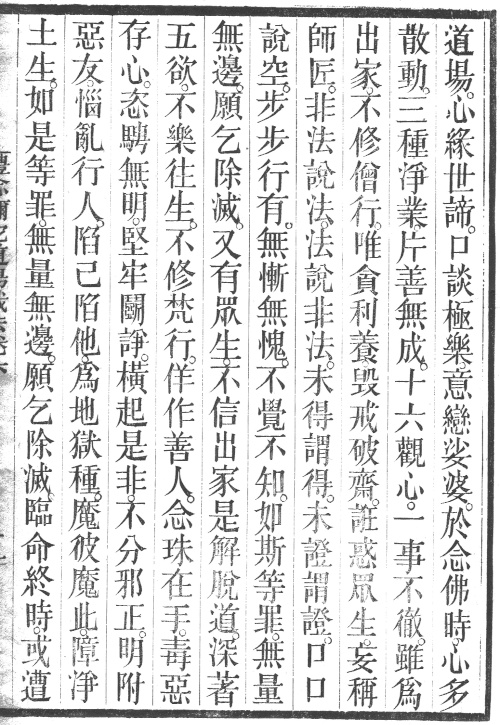 道場。心緣世諦。口談極樂。意戀娑婆。於念佛時。心多
散動。三種淨業。片善無成。十六觀心。一事不徹。雖爲
出家。不修僧行。唯貪利養。毀戒破齋。誑惑眾生。妄稱
師匠。非法說法。法說非法。未得謂得。未證謂證。口口
說空。步步行有。無慚無愧。不覺不知。如斯等罪。無量
無邊。願乞除滅。又有眾生。不信出家是解脫道。深著
五欲。不樂往生。不修梵行。佯作善人。念珠在手。毒惡
存心。恣騁無明。堅牢鬬諍。橫起是非。不分邪正。明附
惡友。惱亂行人。陷己陷他。爲地獄種。魔彼魔此。障淨
土生。如是等罪。無量無邊。願乞除滅。臨命終時。或遭